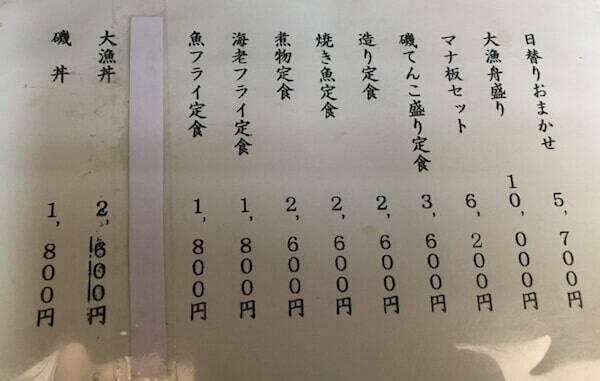 日替りおまかせ 5,700円
大漁舟盛り 10,000円
マナ板セット 6,200円
磯てんこ盛り定食 3,600円
造り定食 2,600円
焼き魚定食 2,600円
煮物定食 2,600円
海老フライ定食 1,800円
魚フライ定食 1,800円
大漁丼 2,600円
磯丼 1,800円